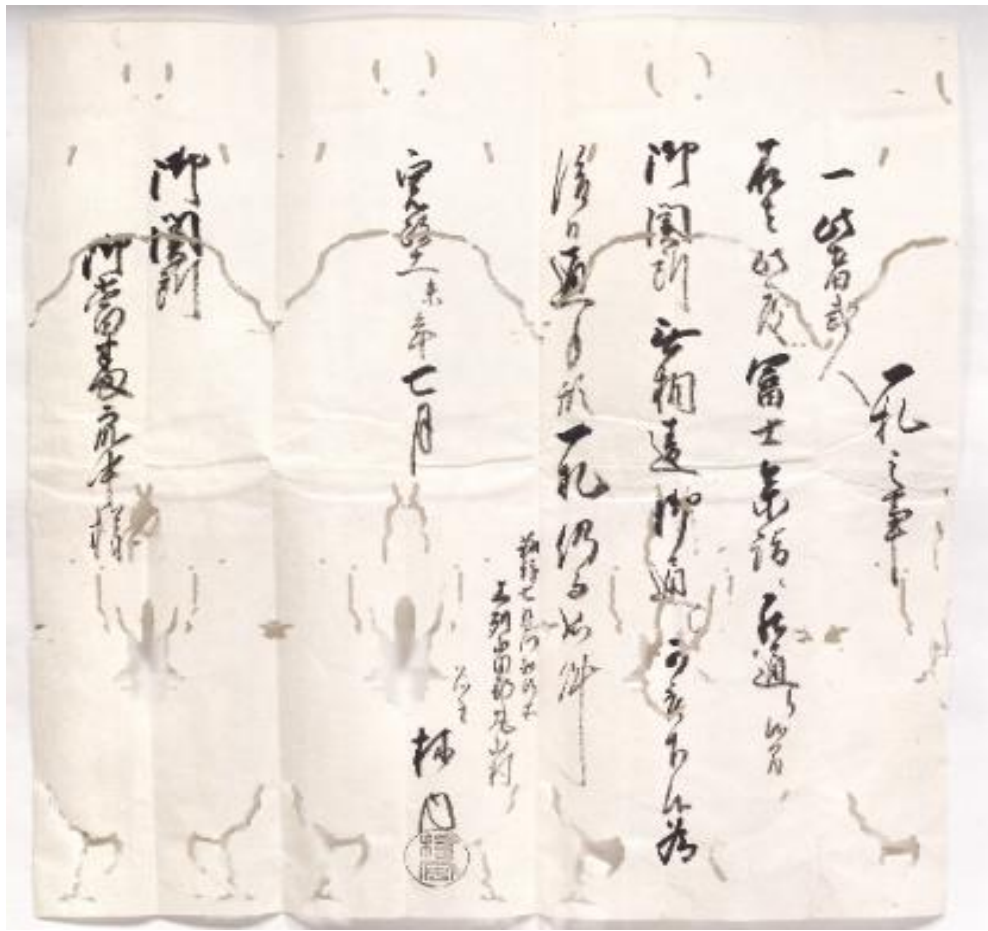 一札之事
一此者
右者此度富士参詣ニ罷通り候間
御関所無相違御通可被下候為
後日通手形一札仍而如件
知行所
上州山田郡丸山村
名主
林内
寛政十一未年七月
御関所
御当番衆中様